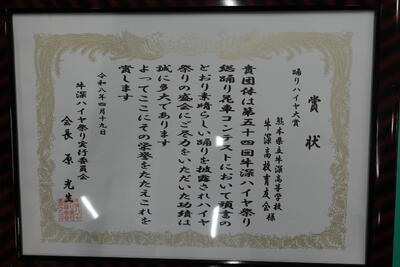 賞状
踊りハイヤ大賞
熊本県立牛深高等学校
牛深高校育友会 様
貴団体は第五十四回牛深ハイヤ祭り
総踊り花車コンテストにおいて頭書の
とおり素晴らしい踊りを披露されハイヤ
祭りの盛会にご尽力をいただいた功績は
誠に多大であります
よってここにその栄誉をたたえこれを
賞します
令和八年四月十九日
牛深ハイヤ祭り実行委員会
会長 原 光生